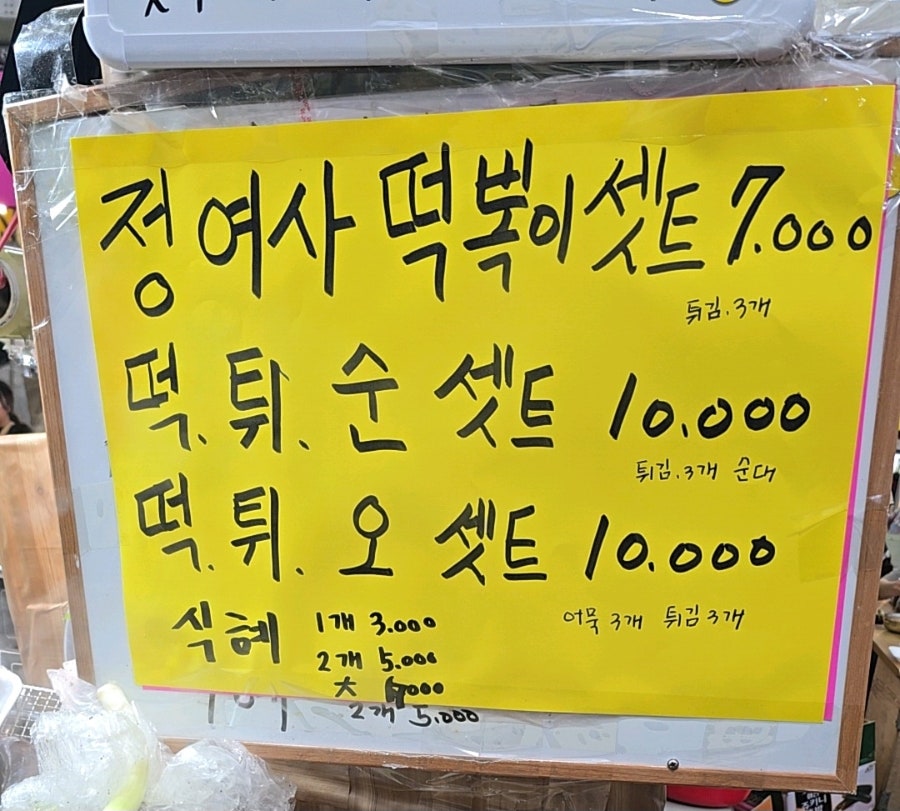 정여사 떡볶이 셋트 7.000
튀김.3개
떡.튀.순 셋트 10.000
튀김.3개 순대
떡.튀.오 셋트 10.000
어묵 3개 튀김 3개
식혜 1개 3.000
2개 5.000
2개 5.000